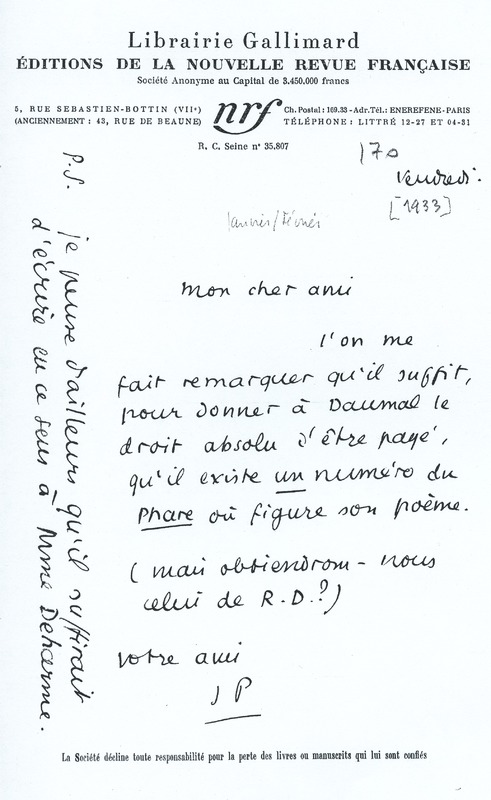 Librairie Gallimard
ÉDITIONS DE LA NOUVELLE REVUE FRANÇAISE
Société Anonyme au Capital de 3.450.000 francs
5, RUE SEBASTIEN-BOTTIN (VIIe)
(ANCIENNEMENT : 43, RUE DE BEAUNE)
nrf
Ch. Postal : 169.33 - Adr. Tél. : ENEREFENE-PARIS
TÉLÉPHONE : LITTRÉ 12-27 ET 04-31
R. C. Seine n° 35.807
170
Vendredi.
[1933]
Janvier/Février
Mon cher ami
l'on me
fait remarquer qu'il suffit,
pour donner à Daumal le
droit absolu d'être payé,
qu'il existe un numéro du
Phare où figure son poème.
(mais obtiendrons-nous
celui de R.D.?)
votre ami
JP
P.S. je pense d'ailleurs qu'il suffirait
d'écrire en ce sens à Mme Deharme.
La Société décline toute responsabilité pour la perte des livres ou manuscrits qui lui sont confiés